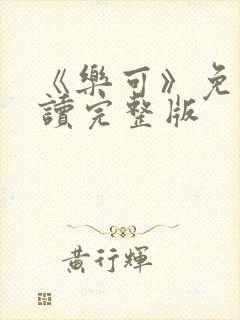 《樂可》免
讀完整版
黃行輝